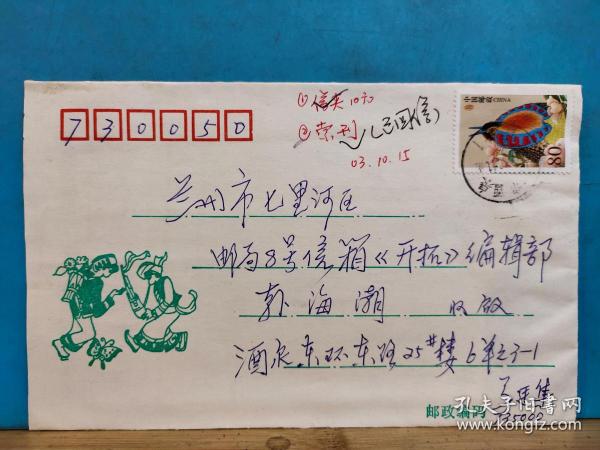 ① 信夹10元
② 索刊 已回信
03.10.15
中国邮政 CHINA
80
730050
兰州市七里河区
邮局8号信箱《开拓》编辑部
郭海潮 收启
酒泉东环东路25#楼6单元3-1
邮政编码 735000
孔夫子旧书网
kongfz.com